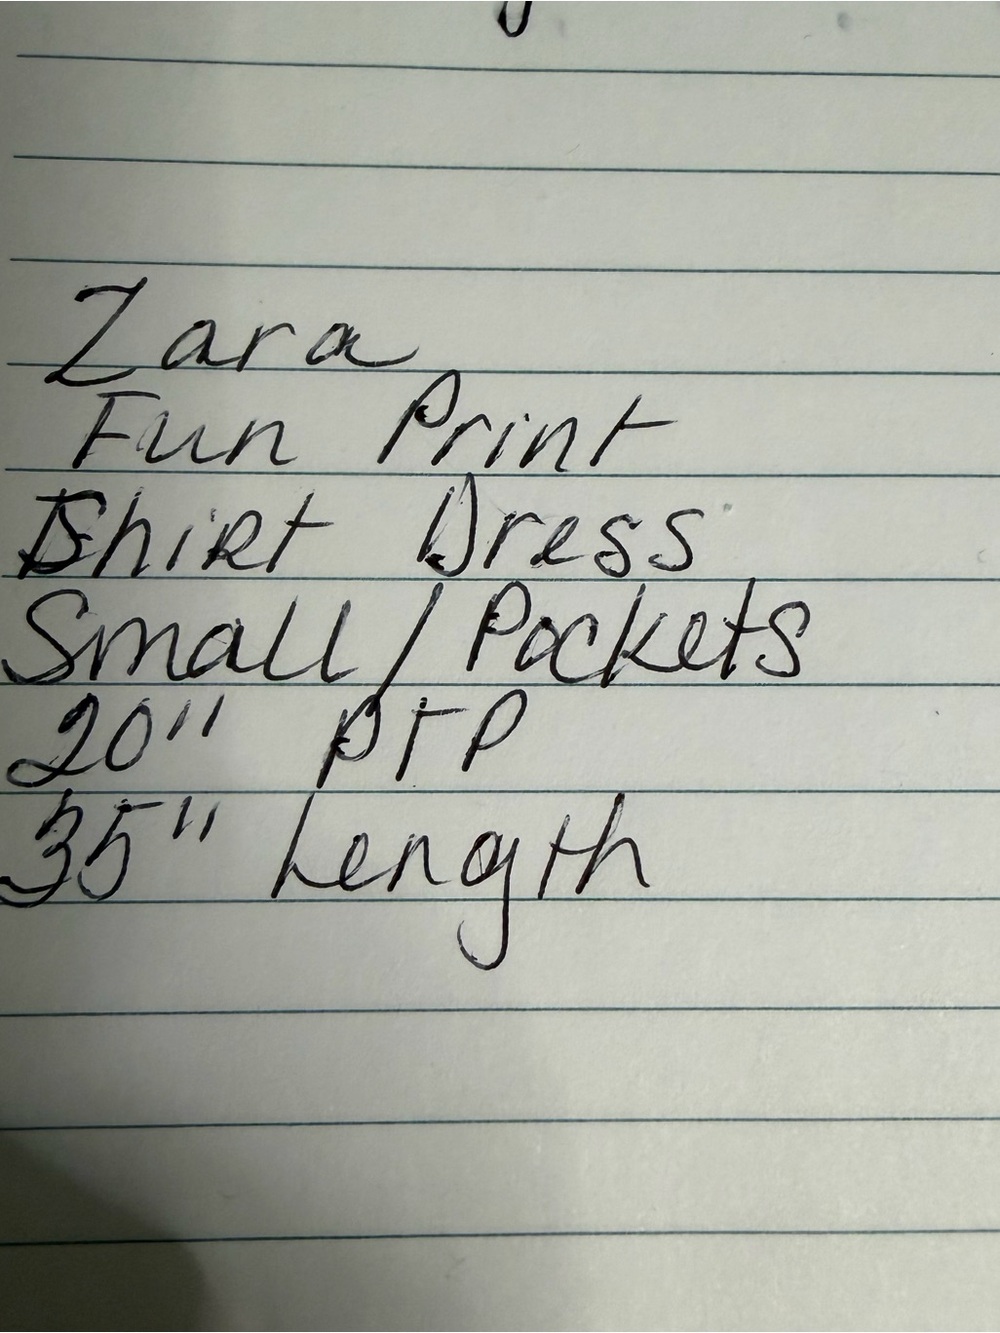 Zara
Fun Print
Shirt Dress
Small/Pockets
20" PTP
35" Length